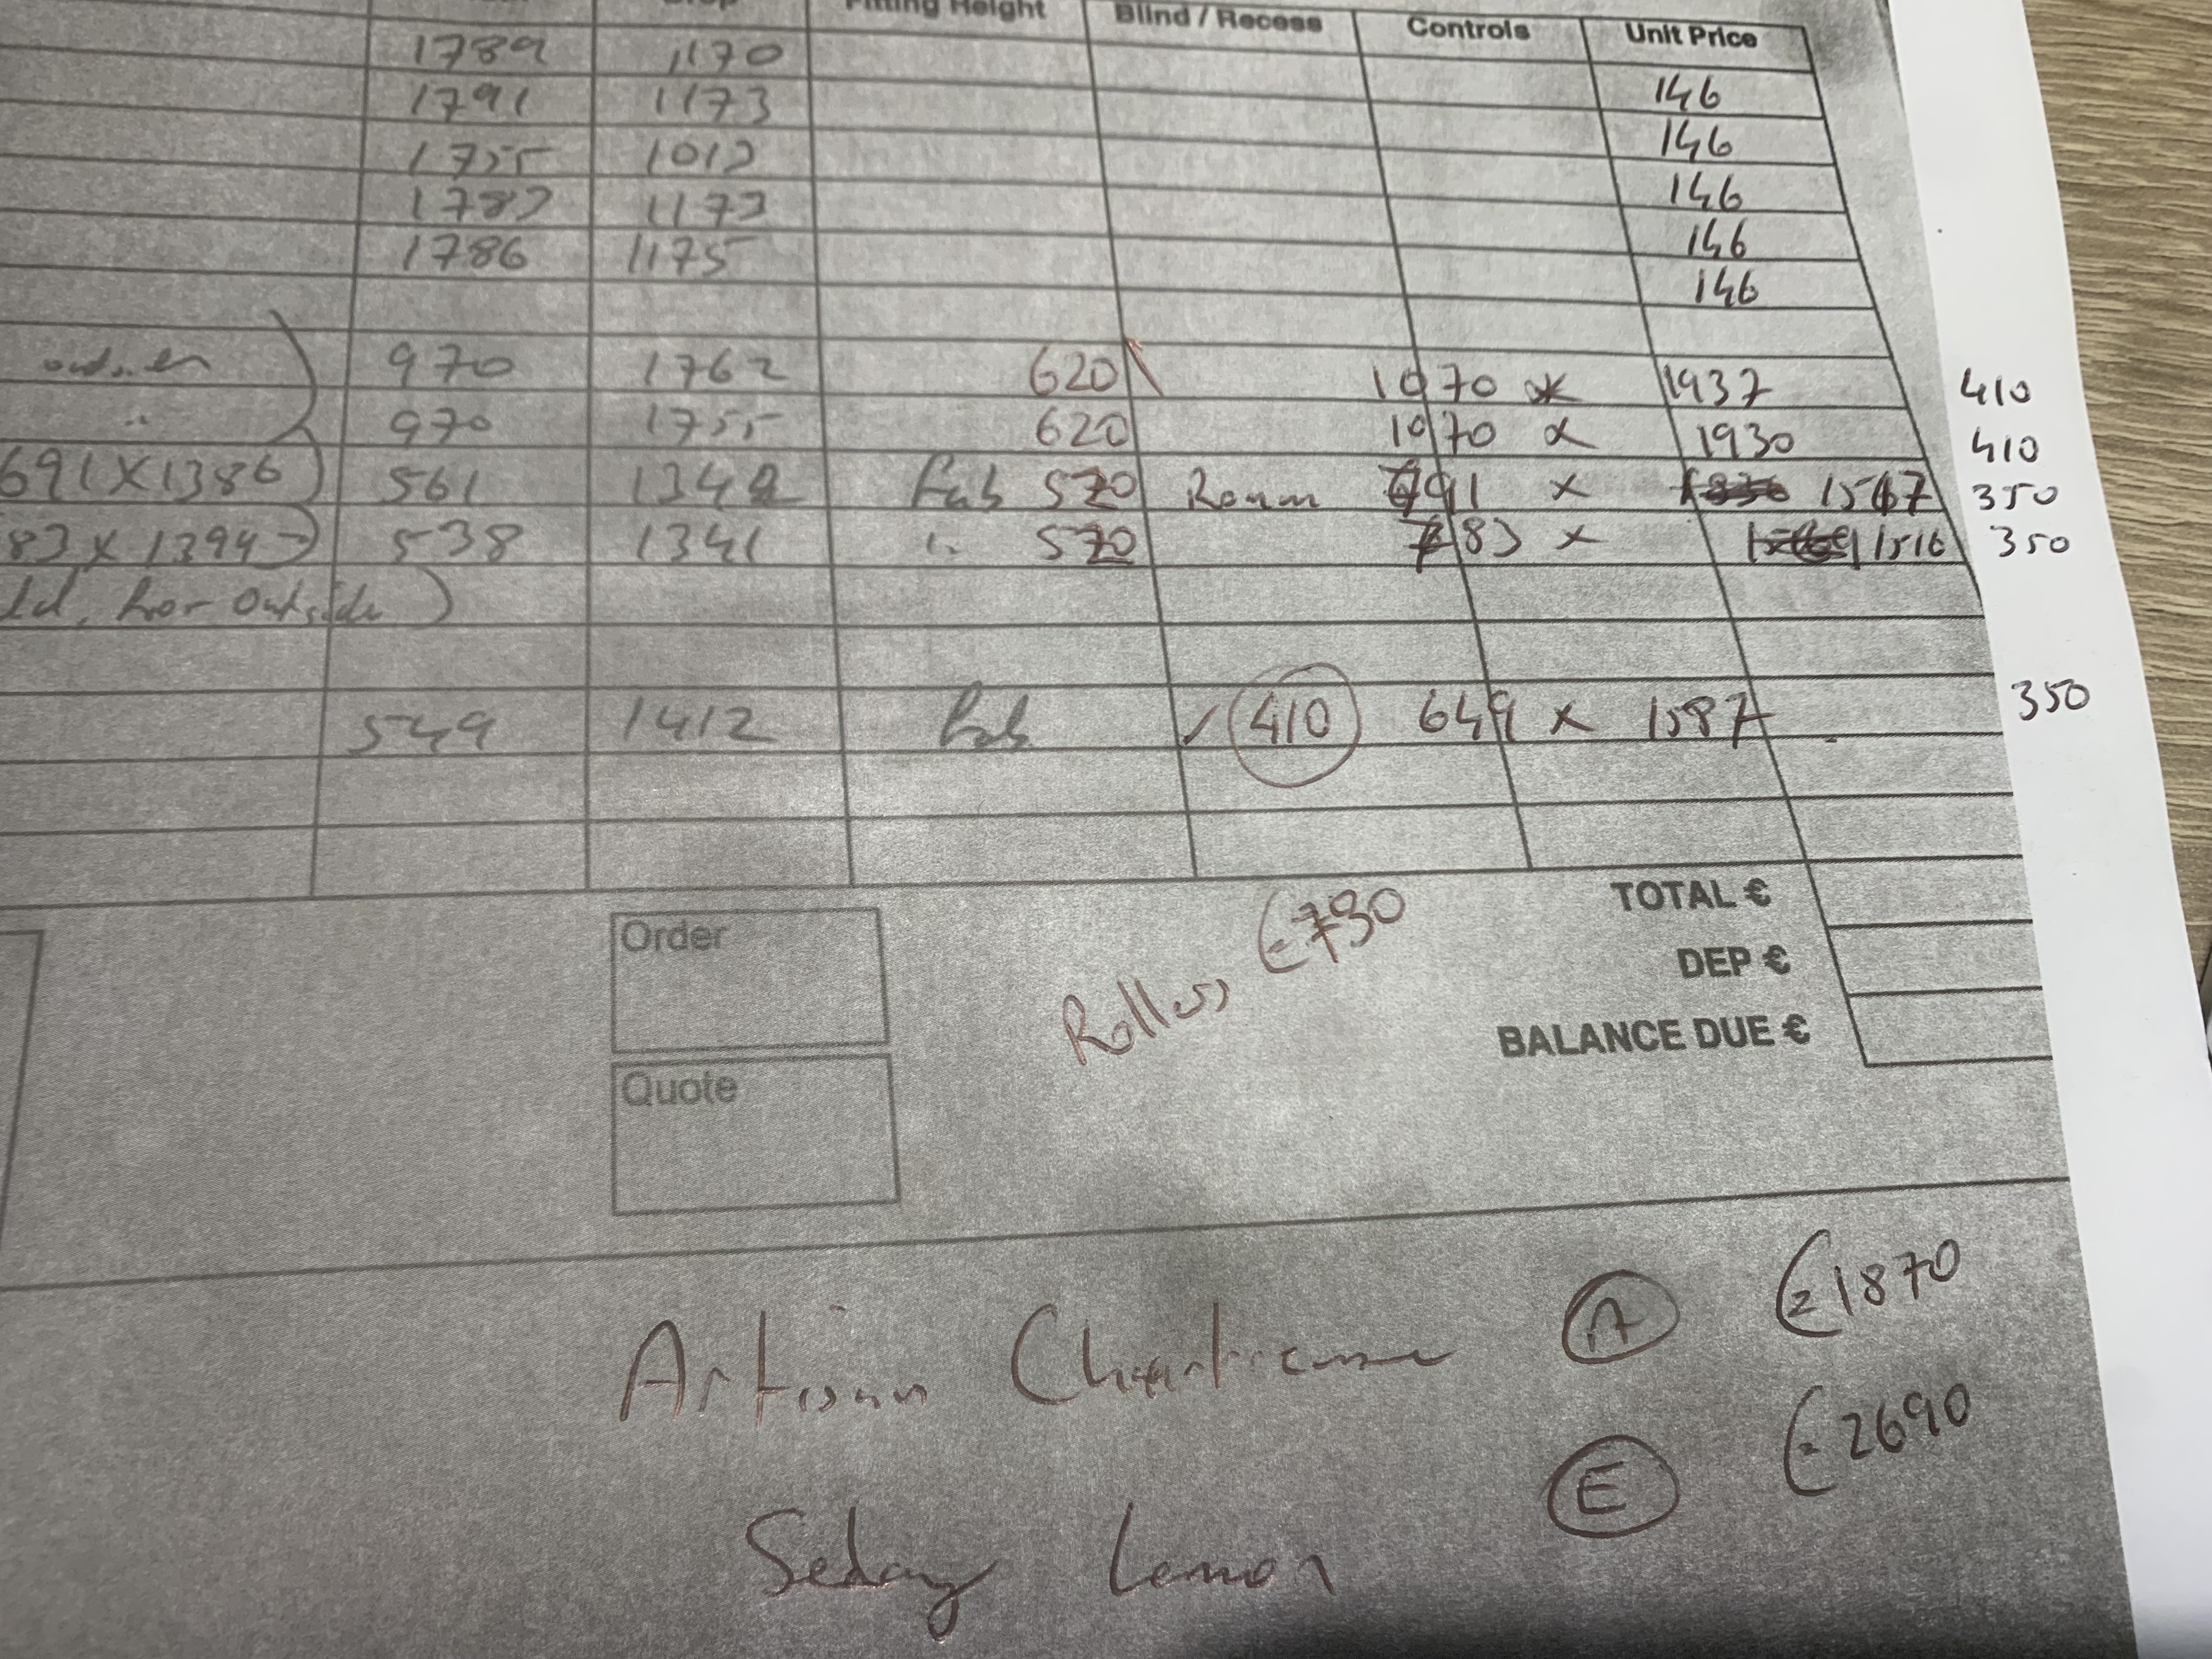 Fitting Height Blind / Recess Controls Unit Price
1789 1170 146
1791 1173 146
1755 1013 146
1783 1173 146
1786 1175 146
970 1762 620 1070 x 1937 410
970 1755 620 1070 x 1930 410
691 X 1386 561 1342 Fab 570 Roman 691 x 1567 350
83 x 1394 538 1341 " 570 83 x 1516 350
hor outside )
549 1412 Fab ✓ 410 649 x 1587 350
TOTAL €
Order
Rollers €730
DEP €
BALANCE DUE €
Quote
Artisan Chartreuse A €1870
Lemon E €2690